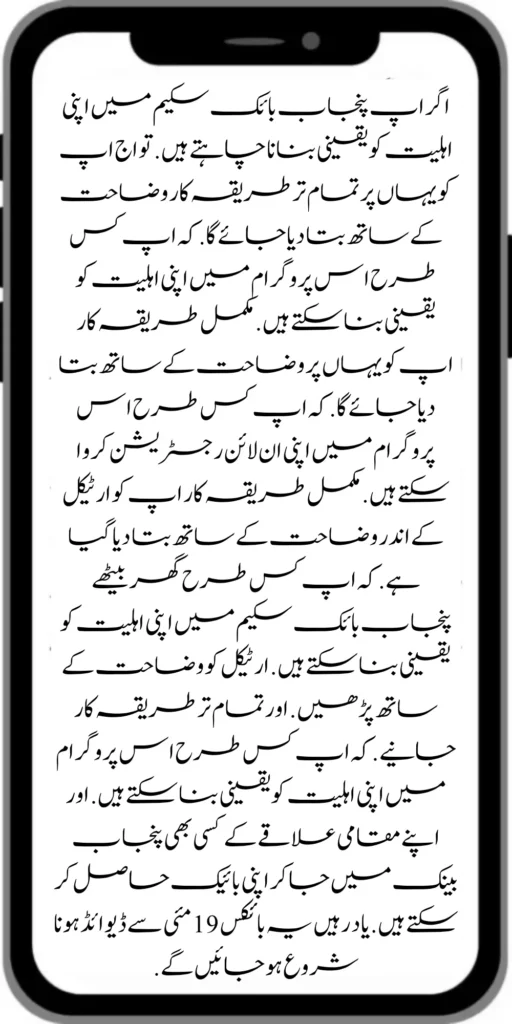 اگر اپ پنجاب بائک سکیم میں اپنی
اہلیت کو یقینی بنانا چاہتے ہیں. تو اج اپ
کو یہاں پر تمام تر طریقہ کار وضاحت
کے ساتھ بتا دیا جائے گا. کہ اپ کس
طرح اس پروگرام میں اپنی اہلیت کو
یقینی بنا سکتے ہیں. مکمل طریقہ کار
اپ کو یہاں پر وضاحت کے ساتھ بتا
دیا جائے گا. کہ اپ کس طرح اس
پروگرام میں اپنی ان لائن رجسٹریشن کروا
سکتے ہیں. مکمل طریقہ کار اپ کو ارٹیکل
کے اندر وضاحت کے ساتھ بتا دیا گیا
ہے. کہ اپ کس طرح گھر بیٹھے
پنجاب بائک سکیم میں اپنی اہلیت کو
یقینی بنا سکتے ہیں. ارٹیکل کو وضاحت کے
ساتھ پڑھیں. اور تمام تر طریقہ کار
جانیے. کہ اپ کس طرح اس پروگرام
میں اپنی اہلیت کو یقینی بنا سکتے ہیں. اور
اپنے مقامی علاقے کے کسی بھی پنجاب
بینک میں جا کر اپنی بائیک حاصل کر
سکتے ہیں. یاد رہیں یہ بائکس 19 مئی سے ڈیوائڈ ہونا
شروع ہو جائیں گے.